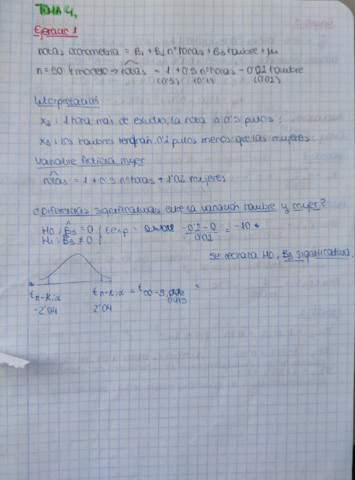 TEMA 4.
Ejercicio 1
notas econometria = β1 + β2 nº horas + β3 hombre + μi
n=50 modelo → notas = 1 + 0'5 nº horas - 0'2 hombre
(0'02)
Interpretación
x2: 1 hora más de estudio la nota 0'5 puntos;
x3: los hombres tendrán 0'2 puntos menos que las mujeres.
Variable ficticia mujer
notas = 1 + 0'5 nº horas + 1'02 mujeres
¿Diferencias significativas entre la variación hombre y mujer?
H0: β3 = 0 } texp = -0'2-0 / 0'02 = -10
H1: β3 ≠ 0 }
se rechaza H0, β3 significativa.
tn-k;α tn-k;α = t50-3,
-2'04 2'04